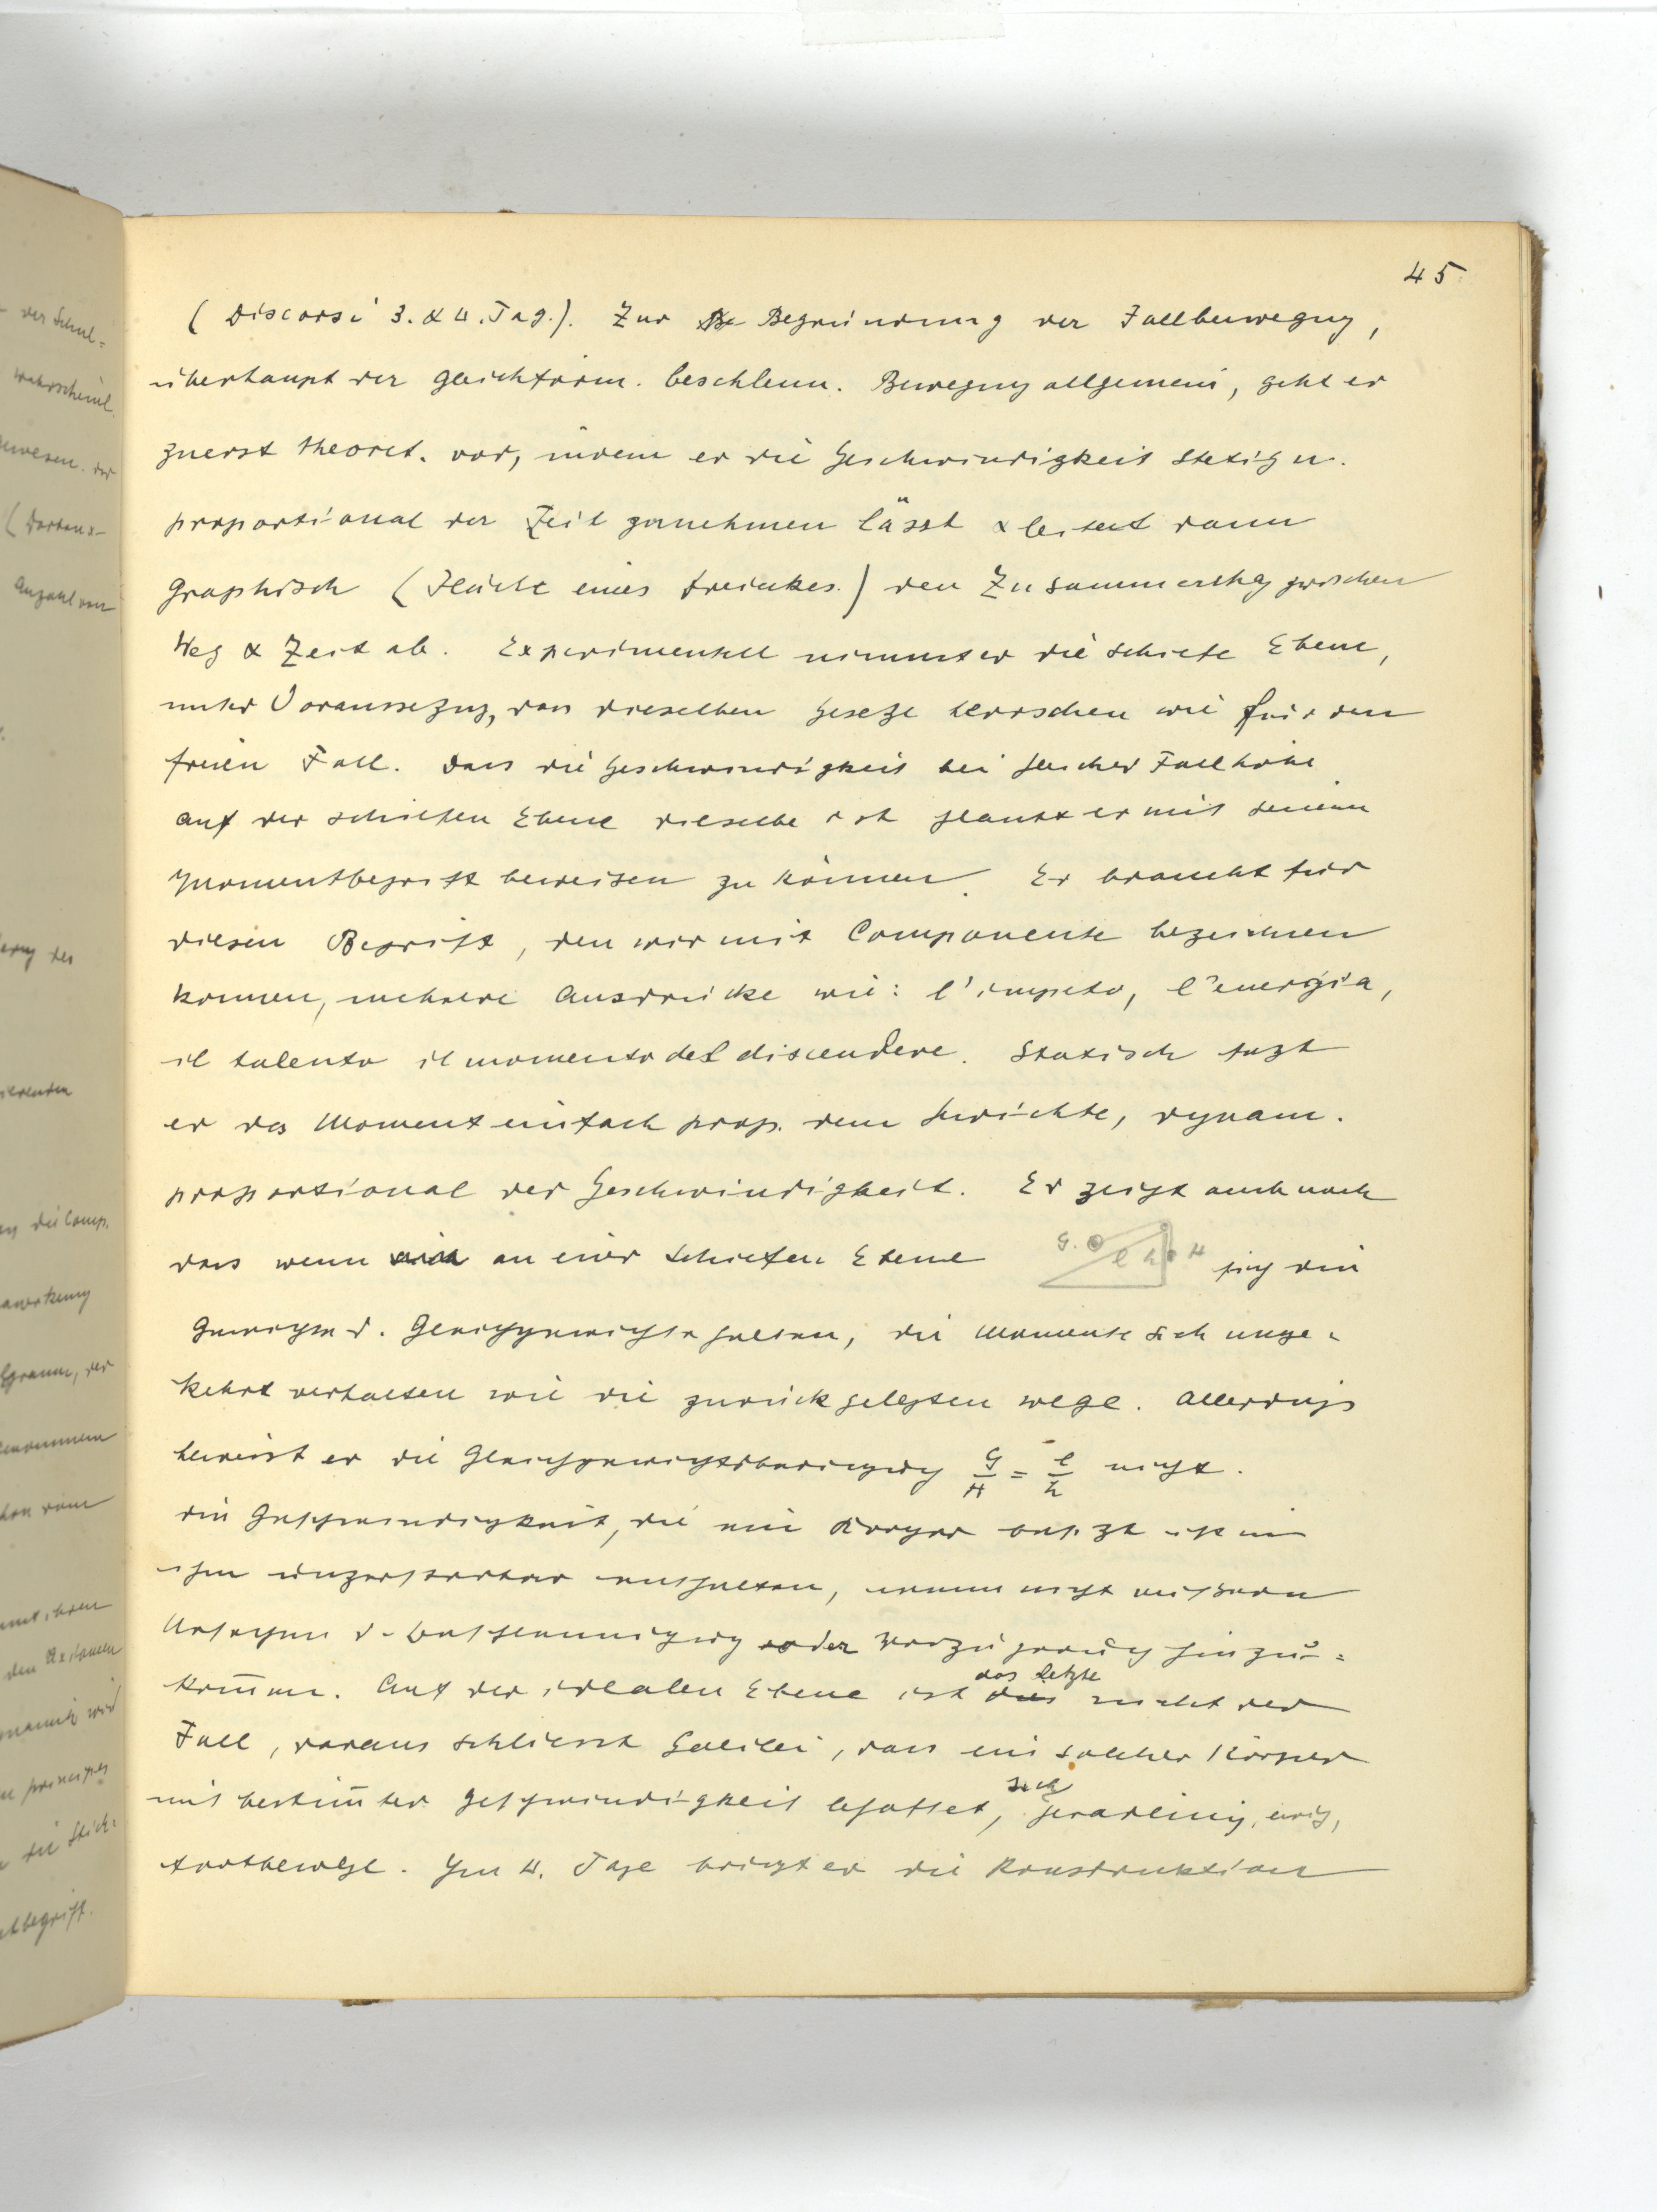 45
(Discorsi 3. & 4. Tag.). Zur Begründung der Fallbewegung,
überhaupt der gleichförm. beschleun. Bewegung allgemein, geht er
zuerst theoret. vor, indem er die Geschwindigkeit stetig u.
proportional der Zeit zunehmen lässt & leitet dann
graphisch (Fläche eines Dreieckes.) den Zusammenhg zwischen
Weg & Zeit ab. Experimentell nimmt er die schiefe Ebene,
unter Voraussezug, dass dieselben Geseze herrschen wie für den
freien Fall. Dass die Geschwindigkeit bei gleicher Fallhöhe
auf der schiefen Ebene dieselbe ist glaubt er mit seinem
Momentbegriff beweisen zu können. Er braucht für
diesen Begriff, den wir mit Componente bezeichnen
können, mehrere Ausdrücke wie: l'impeto, l'energia,
il talento il momento del discendere. Statisch sezt
er das Moment einfach prop. dem Gewichte, dynam.
proportional der Geschwindigkeit. Er zeigt auch noch
dass wenn an einer schiefen Ebene G. l h H sich die
Gewichte d. Gleichgewichte halten, die Momente sich umge-
kehrt verhalten wie die zurückgelegten Wege. Allerdings
beweist er die Gleichgewichtsbedingung G/H = l/h nicht.
Die Geschwindigkeit, die ein Körper besizt ist in
ihm unzerstörbar enthalten, wenn nicht äussere
Ursachen d. Beschleunigung oder Verzögerung hinzu-
kom̄en. Auf der idealen Ebene ist das letzte nicht der
Fall, daraus schliesst Galilei, dass ein solcher Körper
mit bestim̄ter Geschwindigkeit behaftet, sich geradelinig, ewig,
fortbewege. Im 4. Tage bringt er die Konstruktion